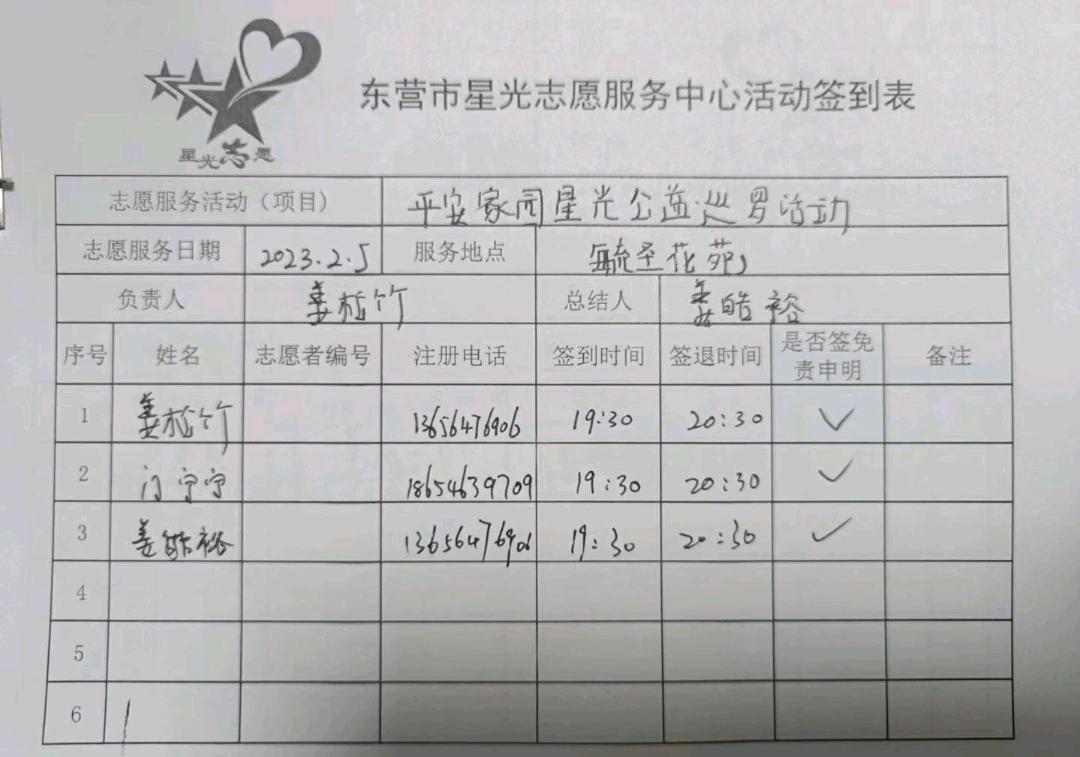 星光志愿
东营市星光志愿服务中心活动签到表
志愿服务活动（项目） 平安家园星光公益巡罗活动
志愿服务日期 2023.2.5 服务地点 毓圣花苑
负责人 姜松竹 总结人 姜皓裕
序号 姓名 志愿者编号 注册电话 签到时间 签退时间 是否签免责申明 备注
1 姜松竹 13656476906 19:30 20:30 ✓
2 门宁宁 18654639709 19:30 20:30 ✓
3 姜皓裕 13656476906 19:30 20:30 ✓
4
5
6